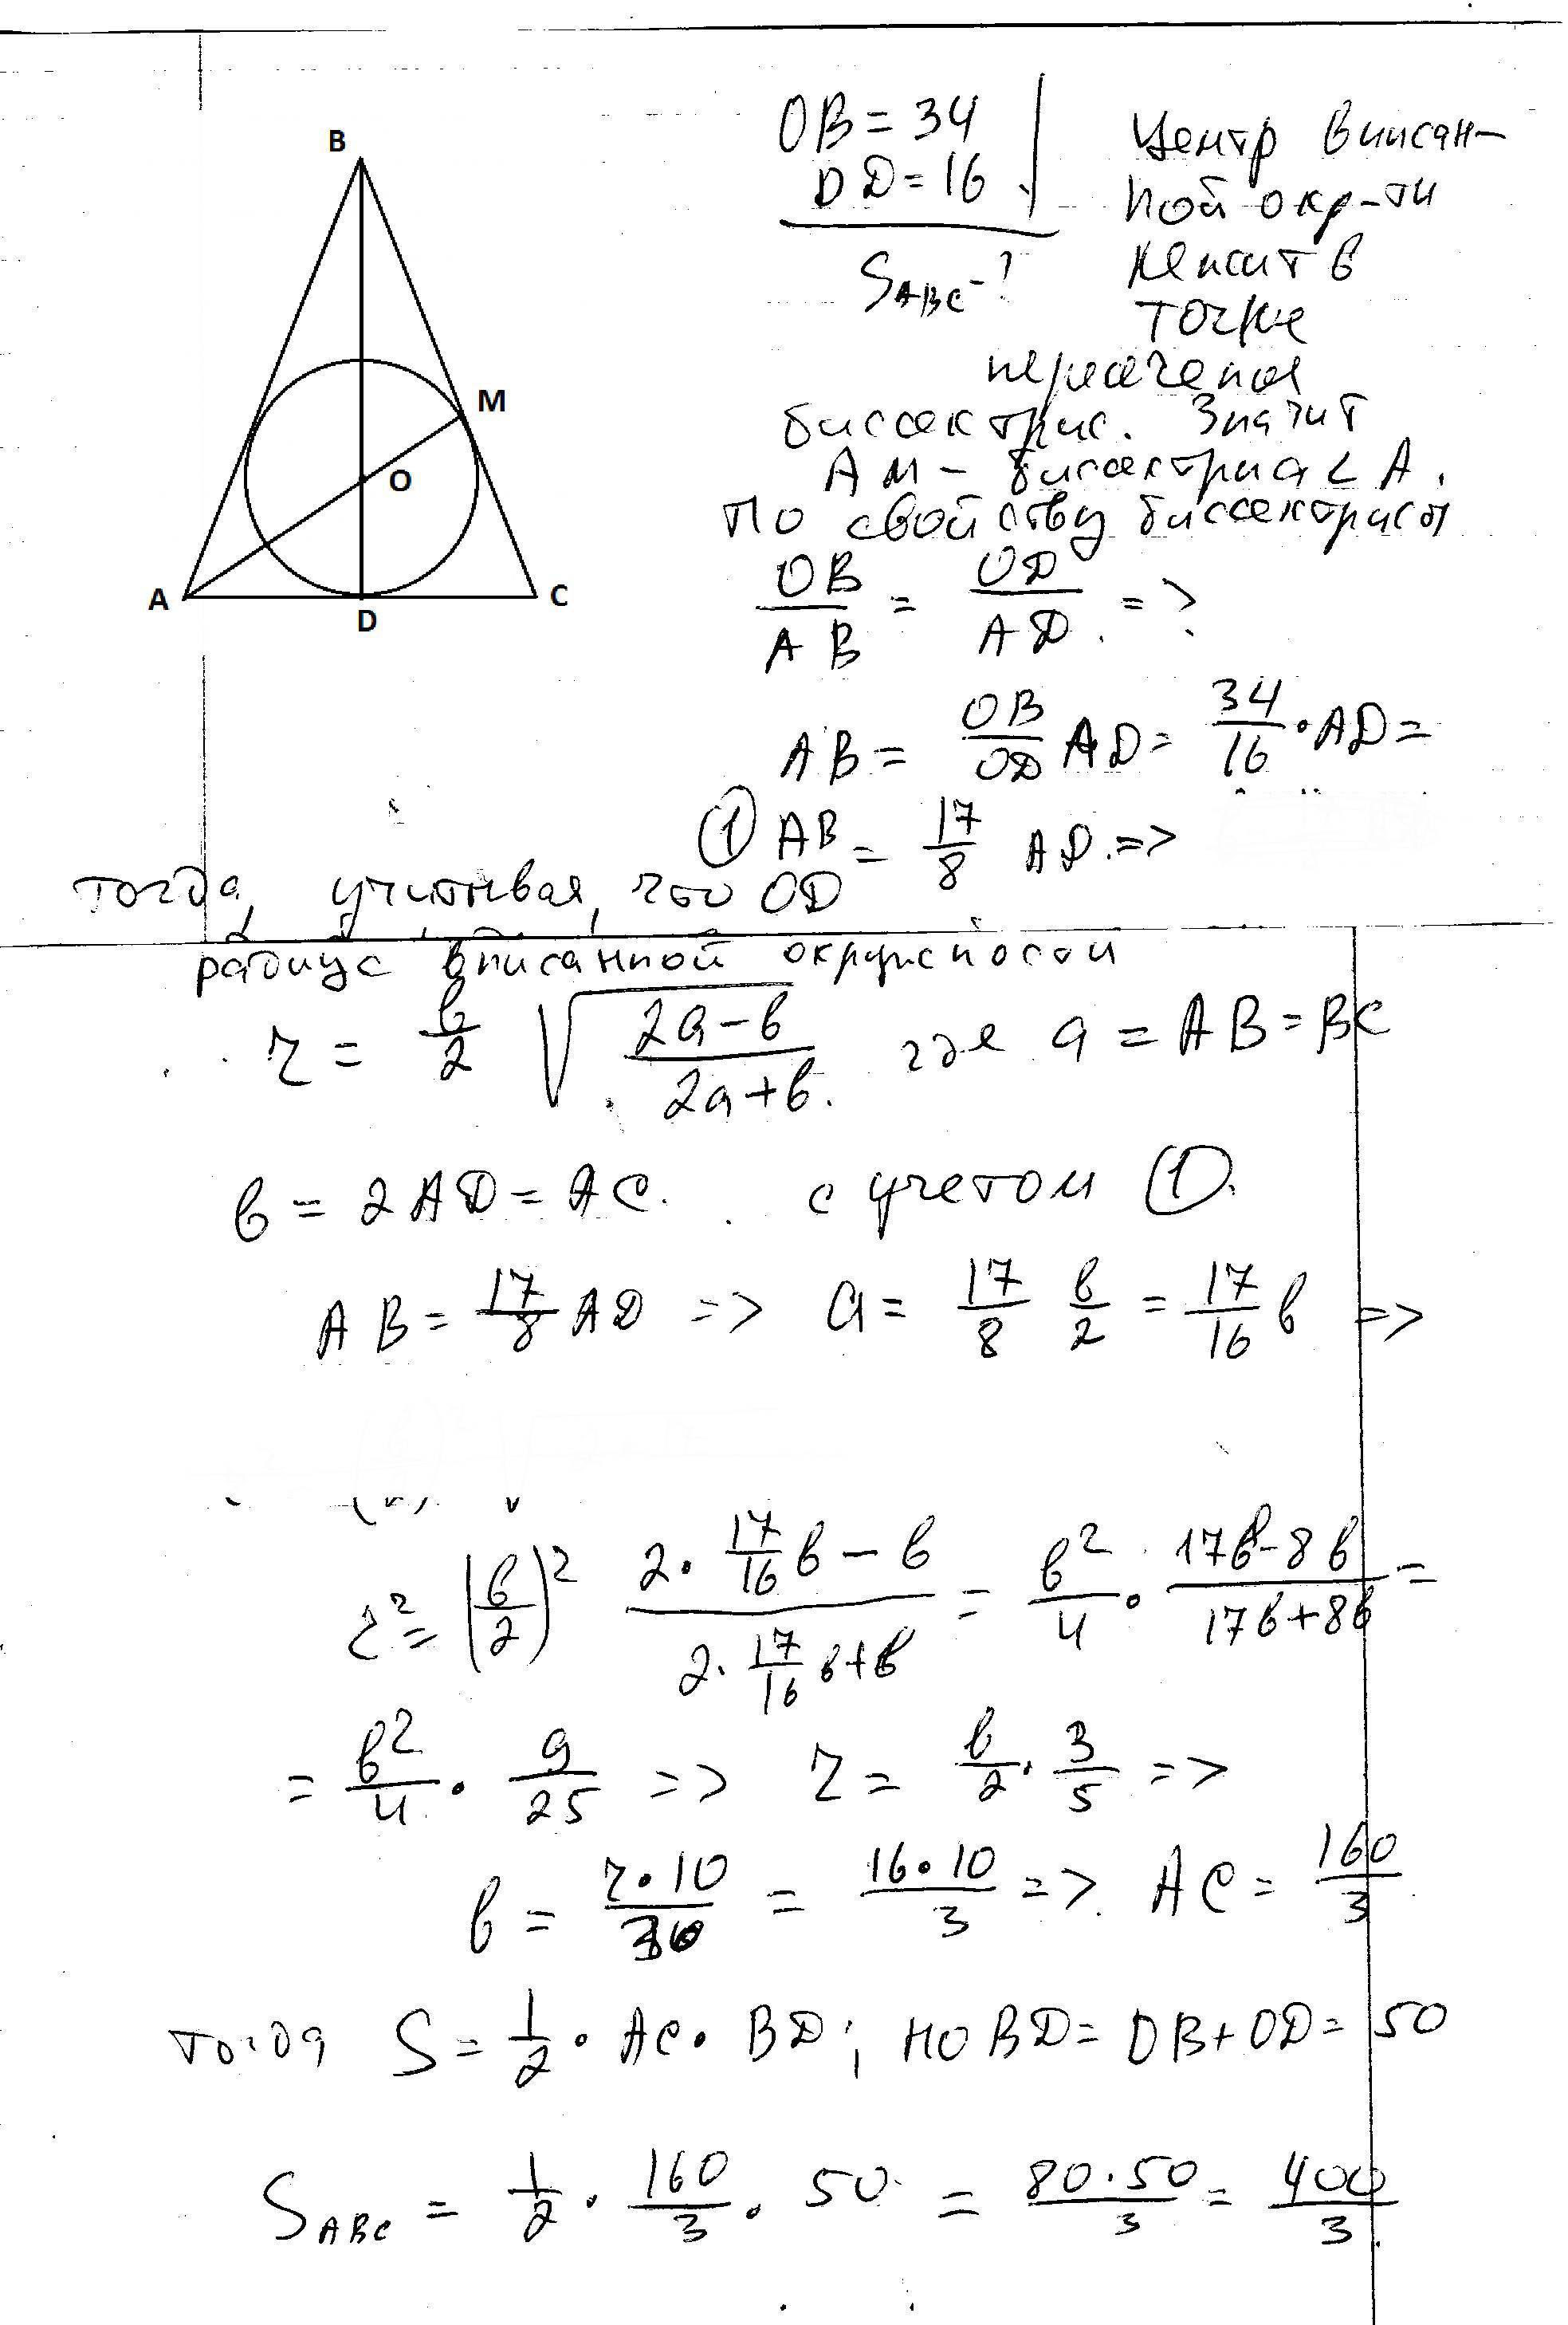 B
M
O
A
D
C
OB = 34
DD = 16
S_ABC - ?
Центр вписан-
ной окр-ти
лежит в
точке
пересечения
биссектрис. Значит
AM - биссектриса ∠ A.
По свойству биссектрисы
OB/AB = OD/AD. =>
AB = OB/OD AD = 34/16 • AD =
① AB = 17/8 AD. =>
тогда, учитывая, что OD
радиус вписанной окружности
r = в/2 √((2a-в)/(2a+в)). где a = AB = BC
в = 2AD = AC. с учетом ①.
AB = 17/8 AD => a = 17/8 в/2 = 17/16 в =>
r² = (в/2)² (2 • 17/16 в - в)/(2 • 17/16 в + в) = в²/4 • (17в - 8в)/(17в + 8в) =
= в²/4 • 9/25 => r = в/2 • 3/5 =>
в = = 16 • 10/3 => AC = 160/3
тогда S = 1/2 • AC • BD; но BD = OB + OD = 50
S_ABC = 1/2 • 160/3 • 50 = 80 • 50/3 = 400/3